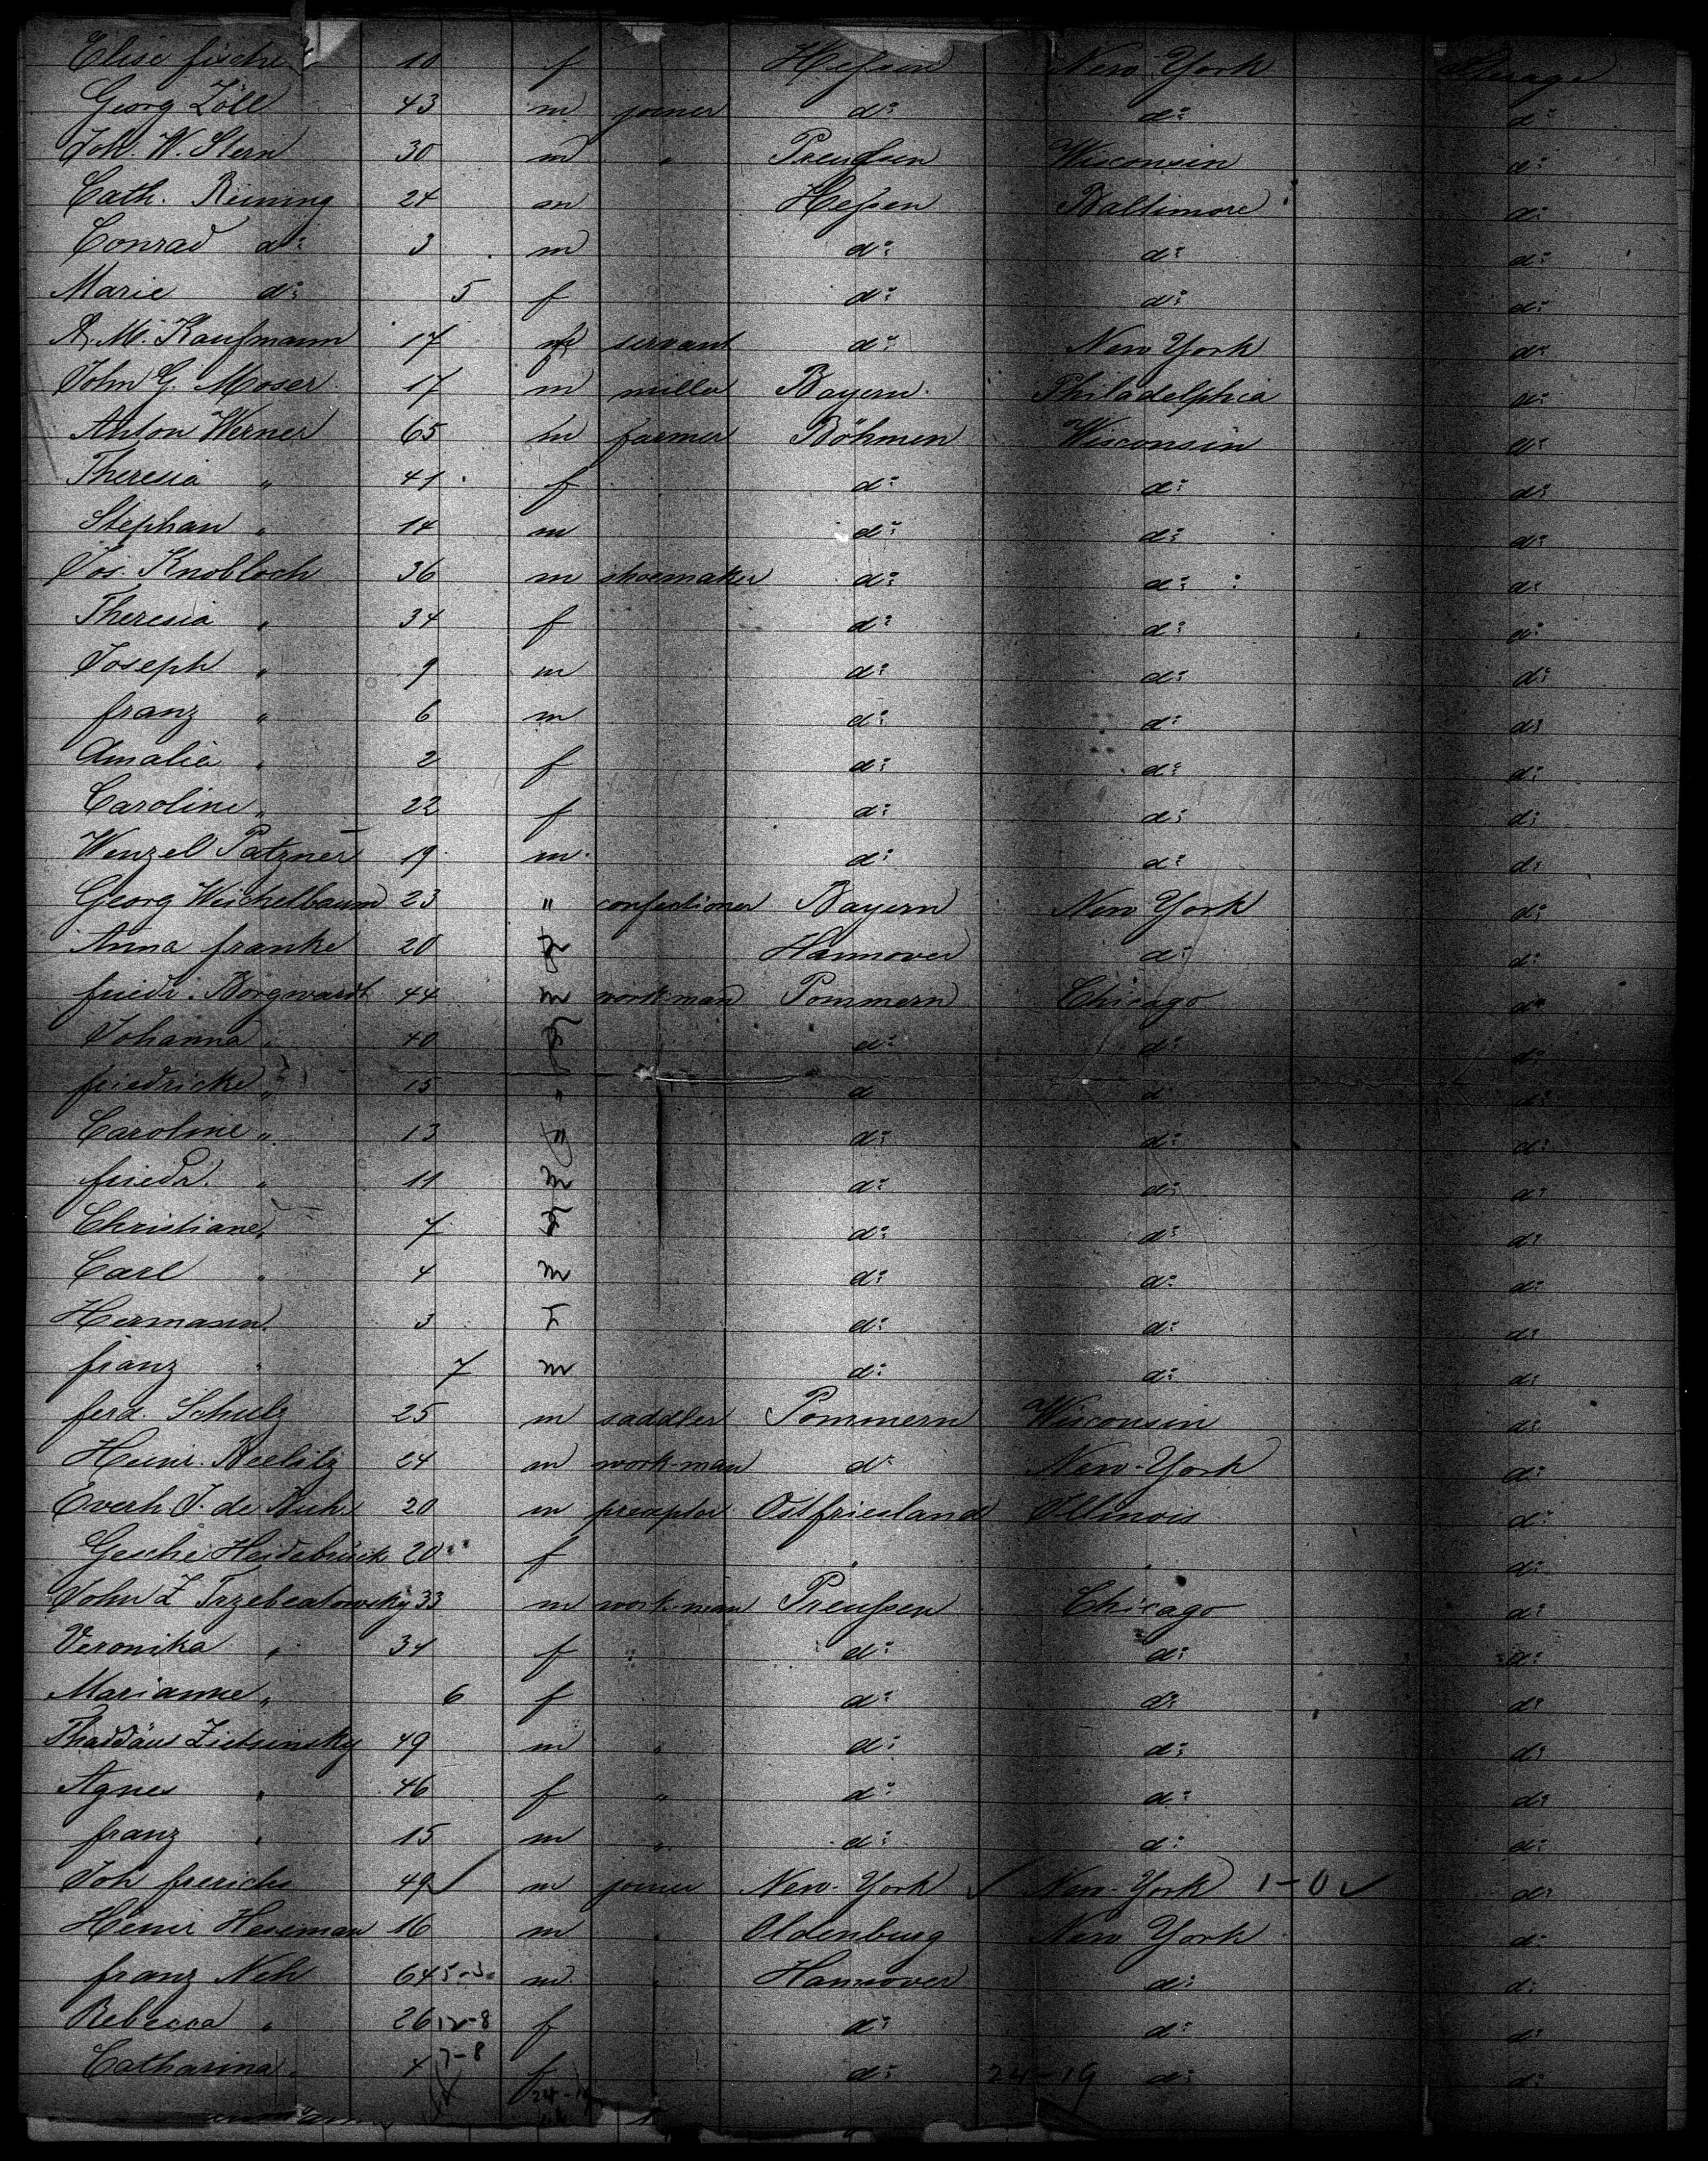 Elise fischer 10 f Heſsen New York Sterage
Georg Zöll 43 m joiner d: d: d:
Joh. W. Stern 30 m " Preuſsen Wisconsin d:
Cath. Reining 24 m Heſsen Baltimore d:
Conrad d: 3 m d: d: d:
Marie d: 5 f d: d: d:
A. M. Kaufmann 17 f servant d: New York d:
John G. Moser 17 m miller Bayern Philadelphia d:
Anton Werner 65 m farmer Böhmen Wisconsin d:
Theresia " 41 f d: d: d:
Stephan " 14 m d: d: d:
Jos. Knobloch 36 m shoemaker d: d: d:
Theresia " 34 f d: d: d:
Joseph " 9 m d: d: d:
franz " 6 m d: d: d:
Amalie " 2 f d: d: d:
Caroline " 22 f d: d: d:
Wenzel Patzner 19 m d: d: d:
Georg Weichelbaum 23 " confectioner Bayern New York d:
Anna franke 20 f Hannover d: d:
friedr. Borgwardt 44 m workman Pommern Chicago d:
Johanna " 40 f d: d: d:
friedricke " 15 " d d d:
Caroline " 13 " d: d: d:
friedr. " 11 m d: d: d:
Christiane " 7 f d: d: d:
Carl " 4 m d: d: d:
Hermann " 3 d: d: d:
franz " 7 m d: d: d:
ferd. Schulz 25 m saddler Pommern Wisconsin d:
Heinr. Beelitz 24 m work-man d: New-York d:
Everh. J. de 20 m preceptor Ostfriesland Illinois d:
Gesche Heidebrück 20 f " " d:
John Z Trzebeatowsky 33 m work-man Preuſsen Chicago d:
Veronika " 34 f " d: d: d:
Marianne " 6 f d: d: d:
Thaddäus Zietsinsky 49 m " d: d: d:
Agnes " 46 f " d: d: d:
franz " 15 m " d: d: d:
Joh frerichs 49 ✓ m joiner New-York ✓ New-York 1-0 ✓ d:
Heinr Heseman 16 m " Oldenburg New York d:
franz Neh 64 5-3 m " Hannover d: d:
Rebecca " 26 12-8 f d: d: d:
Catharina " 4 7-8 f d: 24-19 d: d:
24-19